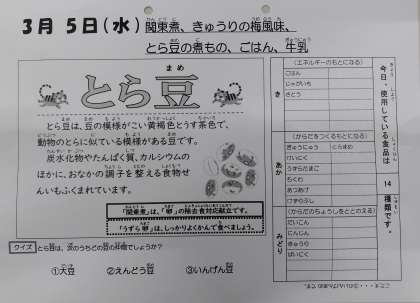 3月 5日(水) 関東煮、きゅうりの梅風味、
とら豆の煮もの、ごはん、牛乳
とら豆
まめ
とら豆は、豆の模様がこい黄褐色とうす茶色で、
動物のとらに似ている模様がある豆です。
炭水化物やたんぱく質、カルシウムの
ほかに、おなかの調子を整える食物せ
んいもふくまれています。
「関東煮」は、「卵」の除去食対応献立です。
「うずら卵」は、しっかりよくかんで食べましょう。
クイズ とら豆は、次のうちどの豆の仲間でしょうか?
①大豆 ②えんどう豆 ③いんげん豆
今日、使用している食品は 14 種類です。
き
(エネルギーのもとになる)
ごはん
じゃがいも
さとう
あか
(からだをつくるもとになる)
ぎゅうにゅう とらまめ
けいにく
うずらたまご
ちくわ
あつあげ
けずりぶし
みどり
(からだのちょうしをととのえる)
だいこん
にんじん
きゅうり
ばいにく